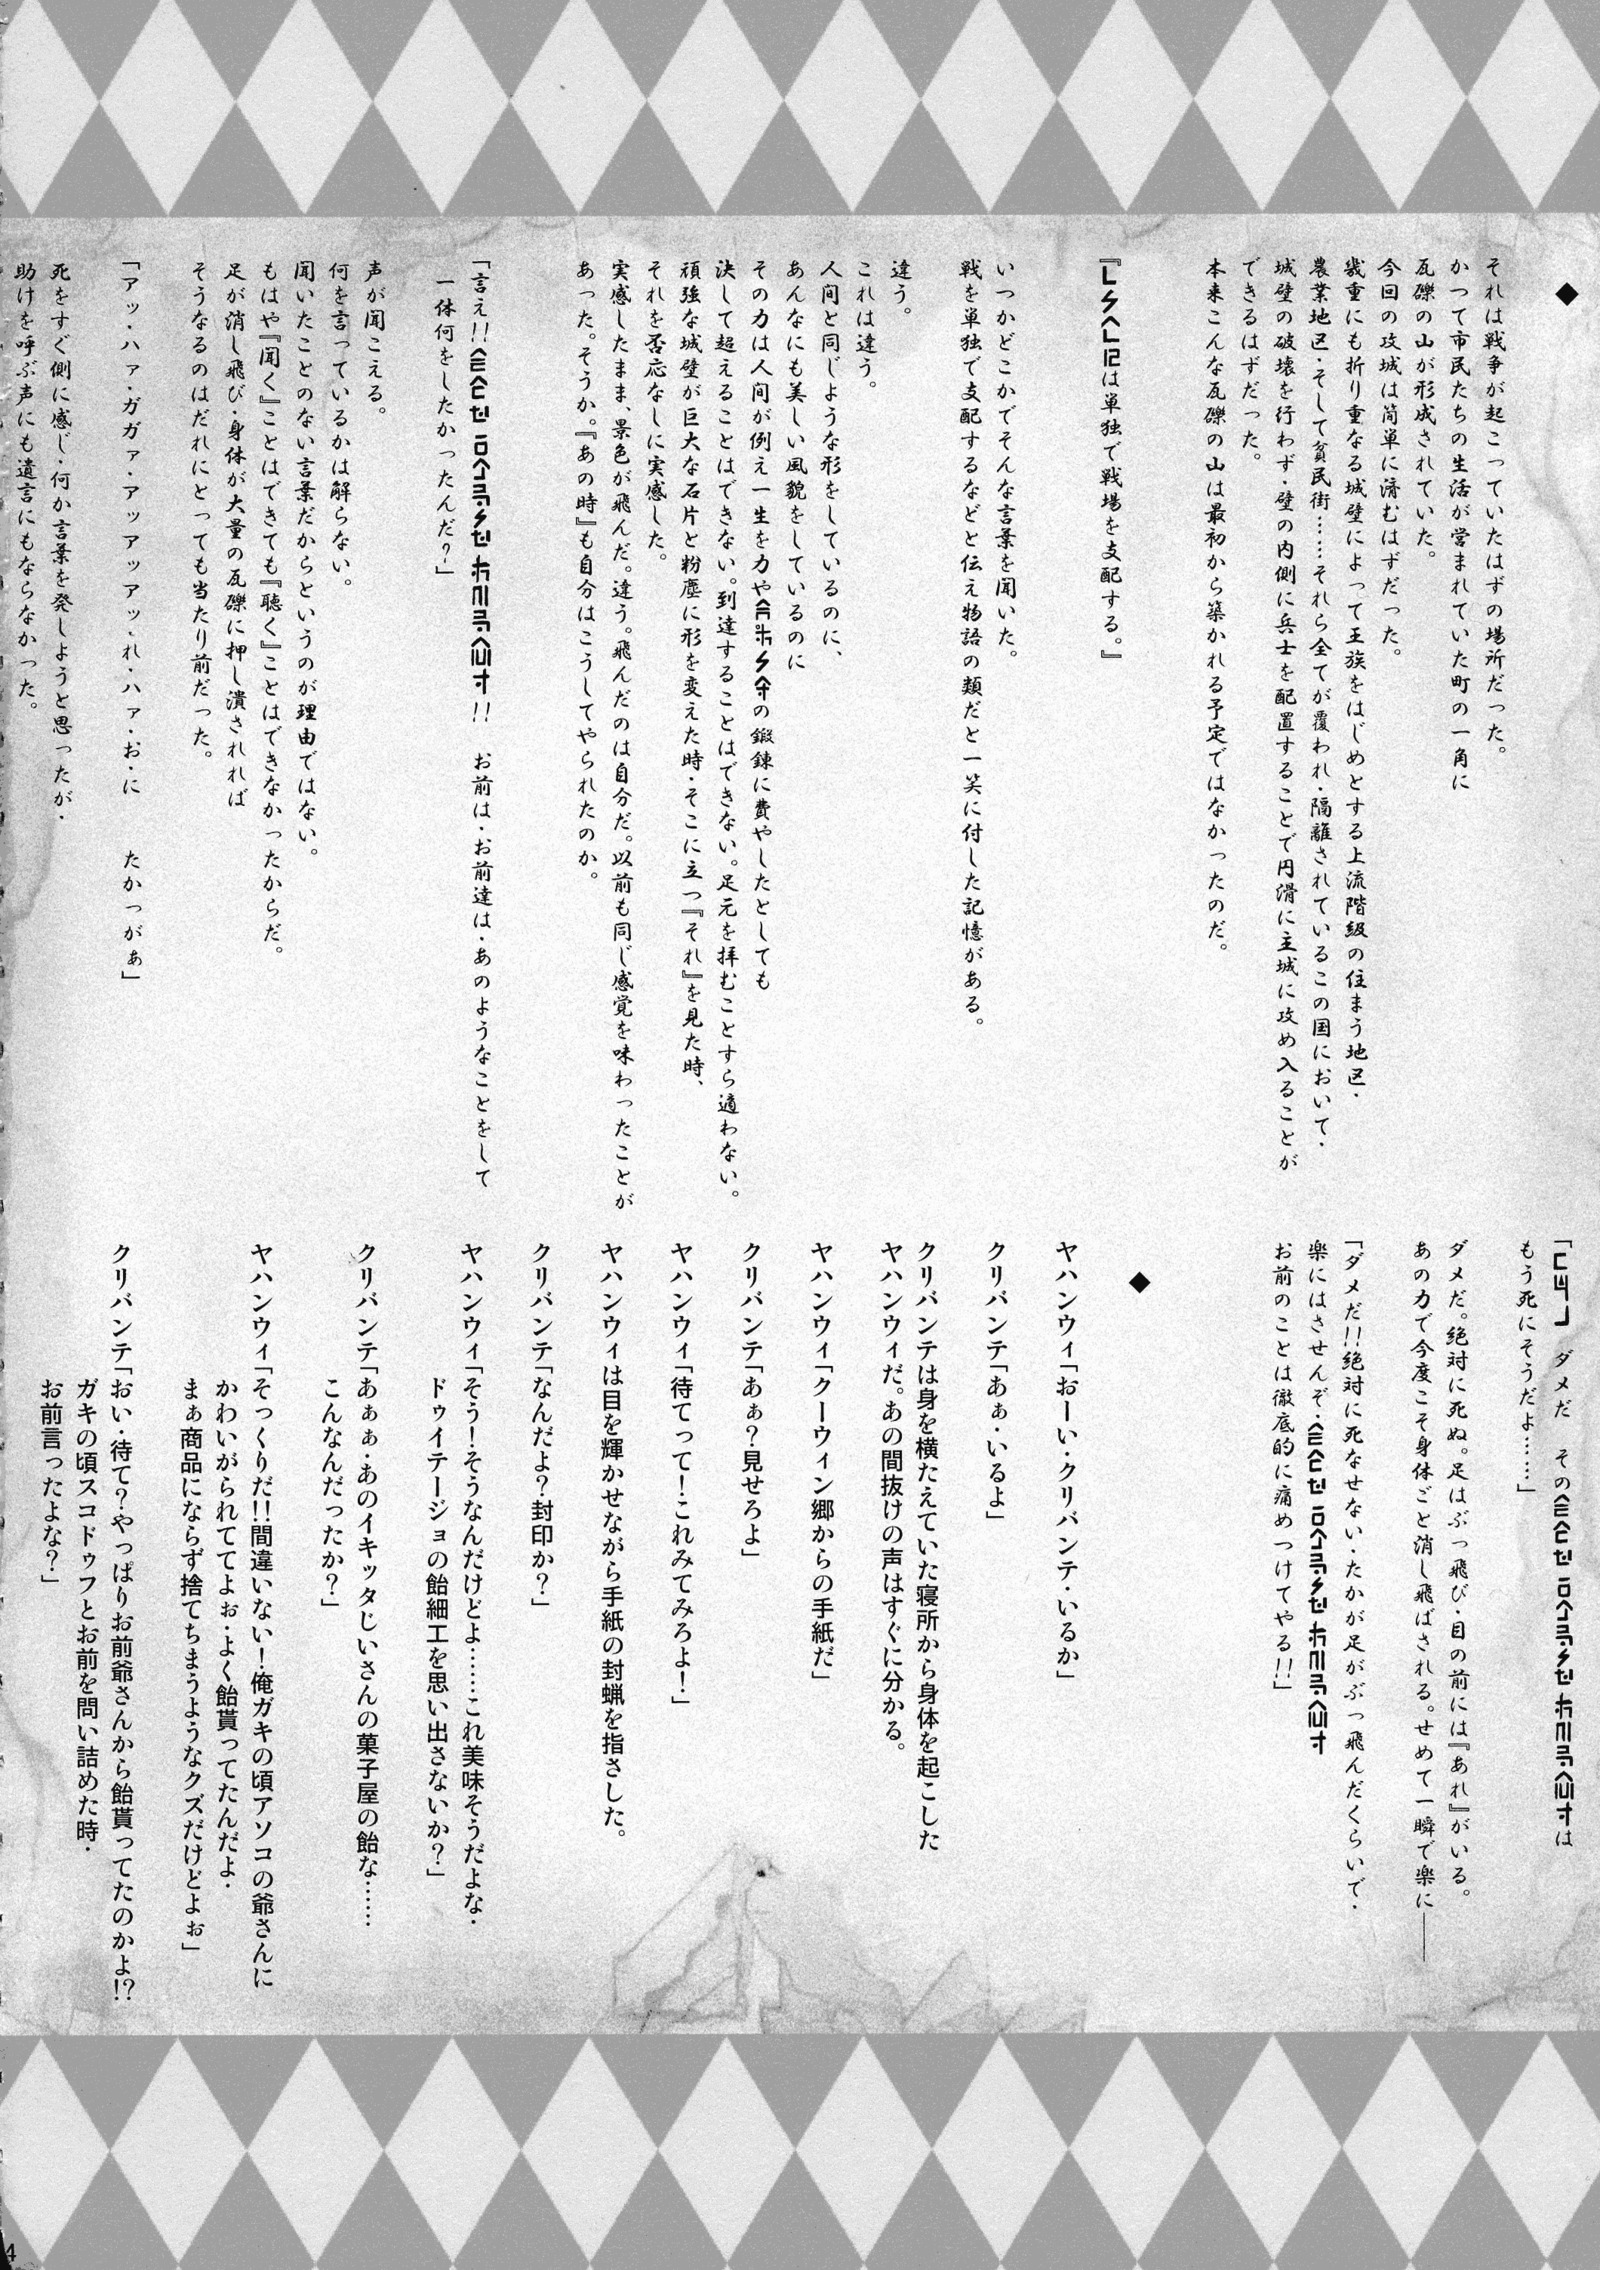 ◆
それは戦争が起こっていたはずの場所だった。
かつて市民たちの生活が営まれていた町の一角に
瓦礫の山が形成されていた。
今回の攻城は簡単に済むはずだった。
幾重にも折り重なる城壁によって王族をはじめとする上流階級の住まう地区・
農業地区・そして貧民街……それら全てが覆われ・隔離されているこの国において・
城壁の破壊を行わず・壁の内側に兵士を配置することで円滑に主城に攻め入ることが
できるはずだった。
本来こんな瓦礫の山は最初から築かれる予定ではなかったのだ。
『は単独で戦場を支配する。』
いつかどこかでそんな言葉を聞いた。
戦を単独で支配するなどと伝え物語の類だと一笑に付した記憶がある。
違う。
これは違う。
人間と同じような形をしているのに、
あんなにも美しい風貌をしているのに
その力は人間が例え一生を力やの鍛錬に費やしたとしても
決して超えることはできない。到達することはできない。足元を拝むことすら適わない。
頑強な城壁が巨大な石片と粉塵に形を変えた時・そこに立つ『それ』を見た時、
それを否応なしに実感した。
実感したまま、景色が飛んだ。違う。飛んだのは自分だ。以前も同じ感覚を味わったことが
あった。そうか。『あの時』も自分はこうしてやられたのか。
「言え!!!! お前は・お前達は・あのようなことをして
一体何をしたかったんだ?」
声が聞こえる。
何を言っているかは解らない。
聞いたことのない言葉だからというのが理由ではない。
もはや『聞く』ことはできても『聴く』ことはできなかったからだ。
足が消し飛び・身体が大量の瓦礫に押し潰されれば
そうなるのはだれにとっても当たり前だった。
「アッ・ハァ・ガガァ・アッアッアッれ・ハァ・お・に たかっがぁ」
死をすぐ側に感じ・何か言葉を発しようと思ったが・
助けを呼ぶ声にも遺言にもならなかった。
「 ダメだ そのは
もう死にそうだよ……」
ダメだ。絶対に死ぬ。足はぶっ飛び・目の前には『あれ』がいる。
あの力で今度こそ身体ごと消し飛ばされる。せめて一瞬で楽に――
「ダメだ!!絶対に死なせない・たかが足がぶっ飛んだくらいで・
楽にはさせんぞ・
お前のことは徹底的に痛めつけてやる!!」
◆
ヤハンウィ「おーい・クリバンテ・いるか」
クリバンテ「あぁ・いるよ」
クリバンテは身を横たえていた寝所から身体を起こした
ヤハンウィだ。あの間抜けの声はすぐに分かる。
ヤハンウィ「クーウィン郷からの手紙だ」
クリバンテ「あぁ?見せろよ」
ヤハンウィ「待てって!これみてみろよ!」
ヤハンウィは目を輝かせながら手紙の封蝋を指さした。
クリバンテ「なんだよ?封印か?」
ヤハンウィ「そう!そうなんだけどよ……これ美味そうだよな・
ドゥイテージョの飴細工を思い出さないか?」
クリバンテ「あぁぁ・あのイキッタじいさんの菓子屋の飴な……
こんなんだったか?」
ヤハンウィ「そっくりだ!!間違いない!俺ガキの頃アソコの爺さんに
かわいがられててよぉ・よく飴貰ってたんだよ・
まぁ商品にならず捨てちまうようなクズだけどよぉ」
クリバンテ「おい・待て?やっぱりお前爺さんから飴貰ってたのかよ!?
ガキの頃スコドゥフとお前を問い詰めた時・
お前言ったよな?」
4